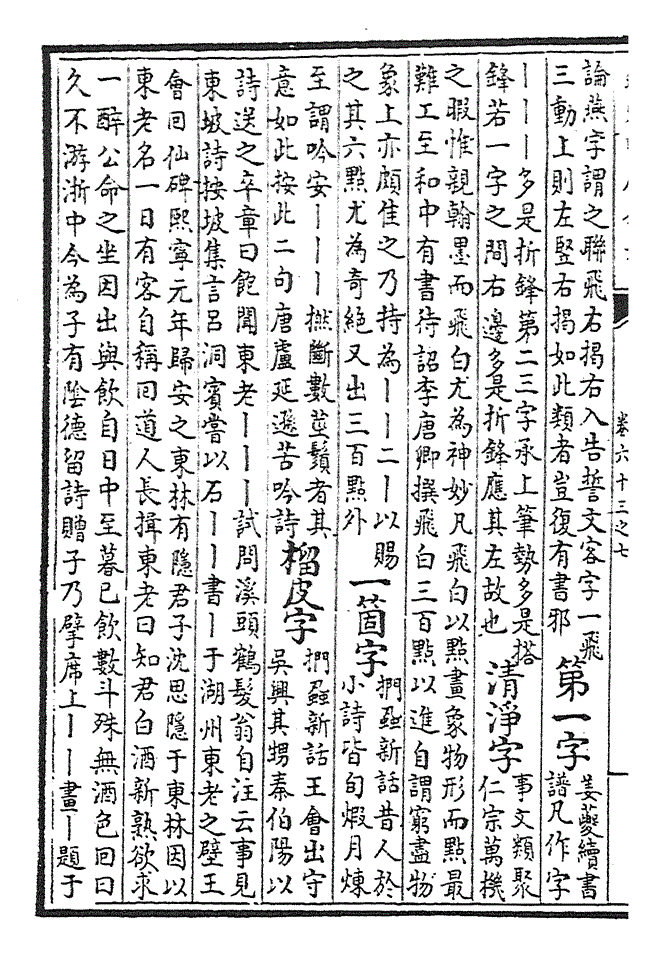 卷六十三之七
論燕字謂之聯飛右揭右入告誓文客字一飛
三動上則左竪右揭如此類者豈復有書邪
第一字
姜夔續書
譜凡作字
丨丨丨多是折鋒第二三字承上筆勢多是搭
鋒若一字之間右邊多是折鋒應其左故也
清淨字
事文類聚
仁宗萬機
之暇惟親翰墨而飛白尤為神妙凡飛白以點畫象物形而點最
難工至和中有書待詔李唐卿撰飛白三百點以進自謂窮盡物
象上亦頗佳之乃持為丨丨二丨以賜
之其六點尤為奇絕又出三百點外
一箇字
捫蝨新話昔人於
小詩皆旬煆月煉
至謂吟安丨丨丨撚斷數莖鬚者其
意如此按此二句唐盧延遜苦吟詩
榴皮字
捫蝨新話王會出守
吳興其甥秦伯陽以
詩送之卒章曰飽聞東老丨丨丨試問溪頭鶴髮翁自注云事見
東坡詩按坡集言呂洞賓嘗以石丨丨書丨于湖州東老之壁王
會回仙碑熙寧元年歸安之東林有隱君子沈思隱于東林因以
東老名一日有客自稱回道人長揖東老曰知君白酒新熟欲求
一醉公命之坐因出與飲自日中至暮已飲數斗殊無酒色回曰
久不游浙中今為子有陰德留詩贈子乃擘席上丨丨畫丨題于